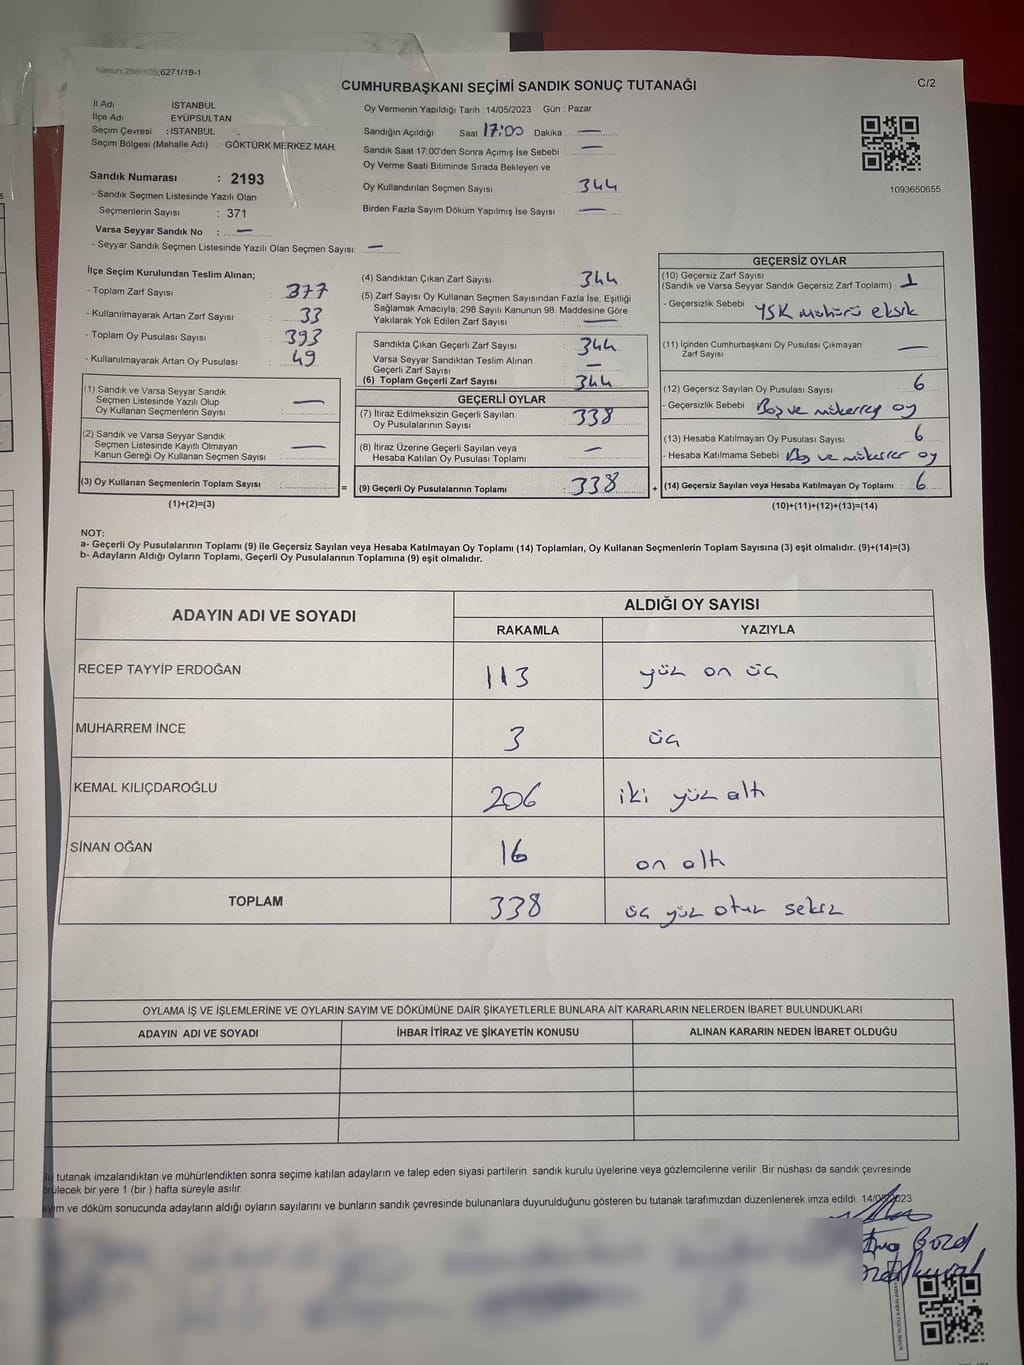 Kanun 298/105;6271/18-1
C/2
CUMHURBAŞKANI SEÇİMİ SANDIK SONUÇ TUTANAĞI
İl Adı : İSTANBUL
İlçe Adı : EYÜPSULTAN
Seçim Çevresi : İSTANBUL
Seçim Bölgesi (Mahalle Adı) : GÖKTÜRK MERKEZ MAH.
Sandık Numarası : 2193
- Sandık Seçmen Listesinde Yazılı Olan
Seçmenlerin Sayısı : 371
Varsa Seyyar Sandık No : —
- Seyyar Sandık Seçmen Listesinde Yazılı Olan Seçmen Sayısı: —
Oy Vermenin Yapıldığı Tarih : 14/05/2023 Gün : Pazar
Sandığın Açıldığı Saat 17:00 Dakika : —
Sandık Saat 17:00'den Sonra Açımış İse Sebebi : —
Oy Verme Saati Bitiminde Sırada Bekleyen ve
Oy Kullandırılan Seçmen Sayısı : 344
Birden Fazla Sayım Döküm Yapılmış İse Sayısı : —
1093650655
İlçe Seçim Kurulundan Teslim Alınan;
- Toplam Zarf Sayısı : 377
- Kullanılmayarak Artan Zarf Sayısı : 33
- Toplam Oy Pusulası Sayısı : 393
- Kullanılmayarak Artan Oy Pusulası : 49
(1) Sandık ve Varsa Seyyar Sandık
Seçmen Listesinde Yazılı Olup
Oy Kullanan Seçmenlerin Sayısı : —
(2) Sandık ve Varsa Seyyar Sandık
Seçmen Listesinde Kayıtlı Olmayan
Kanun Gereği Oy Kullanan Seçmen Sayısı : —
(3) Oy Kullanan Seçmenlerin Toplam Sayısı :
(1)+(2)=(3)
(4) Sandıktan Çıkan Zarf Sayısı : 344
(5) Zarf Sayısı Oy Kullanan Seçmen Sayısından Fazla İse, Eşitliği
Sağlamak Amacıyla, 298 Sayılı Kanunun 98. Maddesine Göre
Yakılarak Yok Edilen Zarf Sayısı : —
Sandıkta Çıkan Geçerli Zarf Sayısı : 344
Varsa Seyyar Sandıktan Teslim Alınan
Geçerli Zarf Sayısı : —
(6) Toplam Geçerli Zarf Sayısı : 344
GEÇERLİ OYLAR
(7) İtiraz Edilmeksizin Geçerli Sayılan
Oy Pusulalarının Sayısı : 338
(8) İtiraz Üzerine Geçerli Sayılan veya
Hesaba Katılan Oy Pusulası Toplamı : —
= (9) Geçerli Oy Pusulalarının Toplamı : 338 +
GEÇERSİZ OYLAR
(10) Geçersiz Zarf Sayısı
(Sandık ve Varsa Seyyar Sandık Geçersiz Zarf Toplamı) : 1
- Geçersizlik Sebebi : YSK mührü eksik
(11) İçinden Cumhurbaşkanı Oy Pusulası Çıkmayan
Zarf Sayısı : —
(12) Geçersiz Sayılan Oy Pusulası Sayısı : 6
- Geçersizlik Sebebi : Boş ve mükerrer oy
(13) Hesaba Katılmayan Oy Pusulası Sayısı : 6
- Hesaba Katılmama Sebebi : Boş ve mükerrer oy
(14) Geçersiz Sayılan veya Hesaba Katılmayan Oy Toplamı : 6
(10)+(11)+(12)+(13)=(14)
NOT:
a- Geçerli Oy Pusulalarının Toplamı (9) ile Geçersiz Sayılan veya Hesaba Katılmayan Oy Toplamı (14) Toplamları, Oy Kullanan Seçmenlerin Toplam Sayısına (3) eşit olmalıdır. (9)+(14)=(3)
b- Adayların Aldığı Oyların Toplamı, Geçerli Oy Pusulalarının Toplamına (9) eşit olmalıdır.
ADAYIN ADI VE SOYADI
ALDIĞI OY SAYISI
RAKAMLA YAZIYLA
RECEP TAYYİP ERDOĞAN 113 yüz on üç
MUHARREM İNCE 3 üç
KEMAL KILIÇDAROĞLU 206 iki yüz altı
SİNAN OĞAN 16 on altı
TOPLAM 338 üç yüz otuz sekiz
OYLAMA İŞ VE İŞLEMLERİNE VE OYLARIN SAYIM VE DÖKÜMÜNE DAİR ŞİKAYETLERLE BUNLARA AİT KARARLARIN NELERDEN İBARET BULUNDUKLARI
ADAYIN ADI VE SOYADI İHBAR İTİRAZ VE ŞİKAYETİN KONUSU ALINAN KARARIN NEDEN İBARET OLDUĞU
Bu tutanak imzalandıktan ve mühürlendikten sonra seçime katılan adayların ve talep eden siyasi partilerin sandık kurulu üyelerine veya gözlemcilerine verilir .Bir nüshası da sandık çevresinde
görülecek bir yere 1 (bir ) hafta süreyle asılır.
Sayım ve döküm sonucunda adayların aldığı oyların sayılarını ve bunların sandık çevresinde bulunanlara duyurulduğunu gösteren bu tutanak tarafımızdan düzenlenerek imza edildi. 14/05/2023